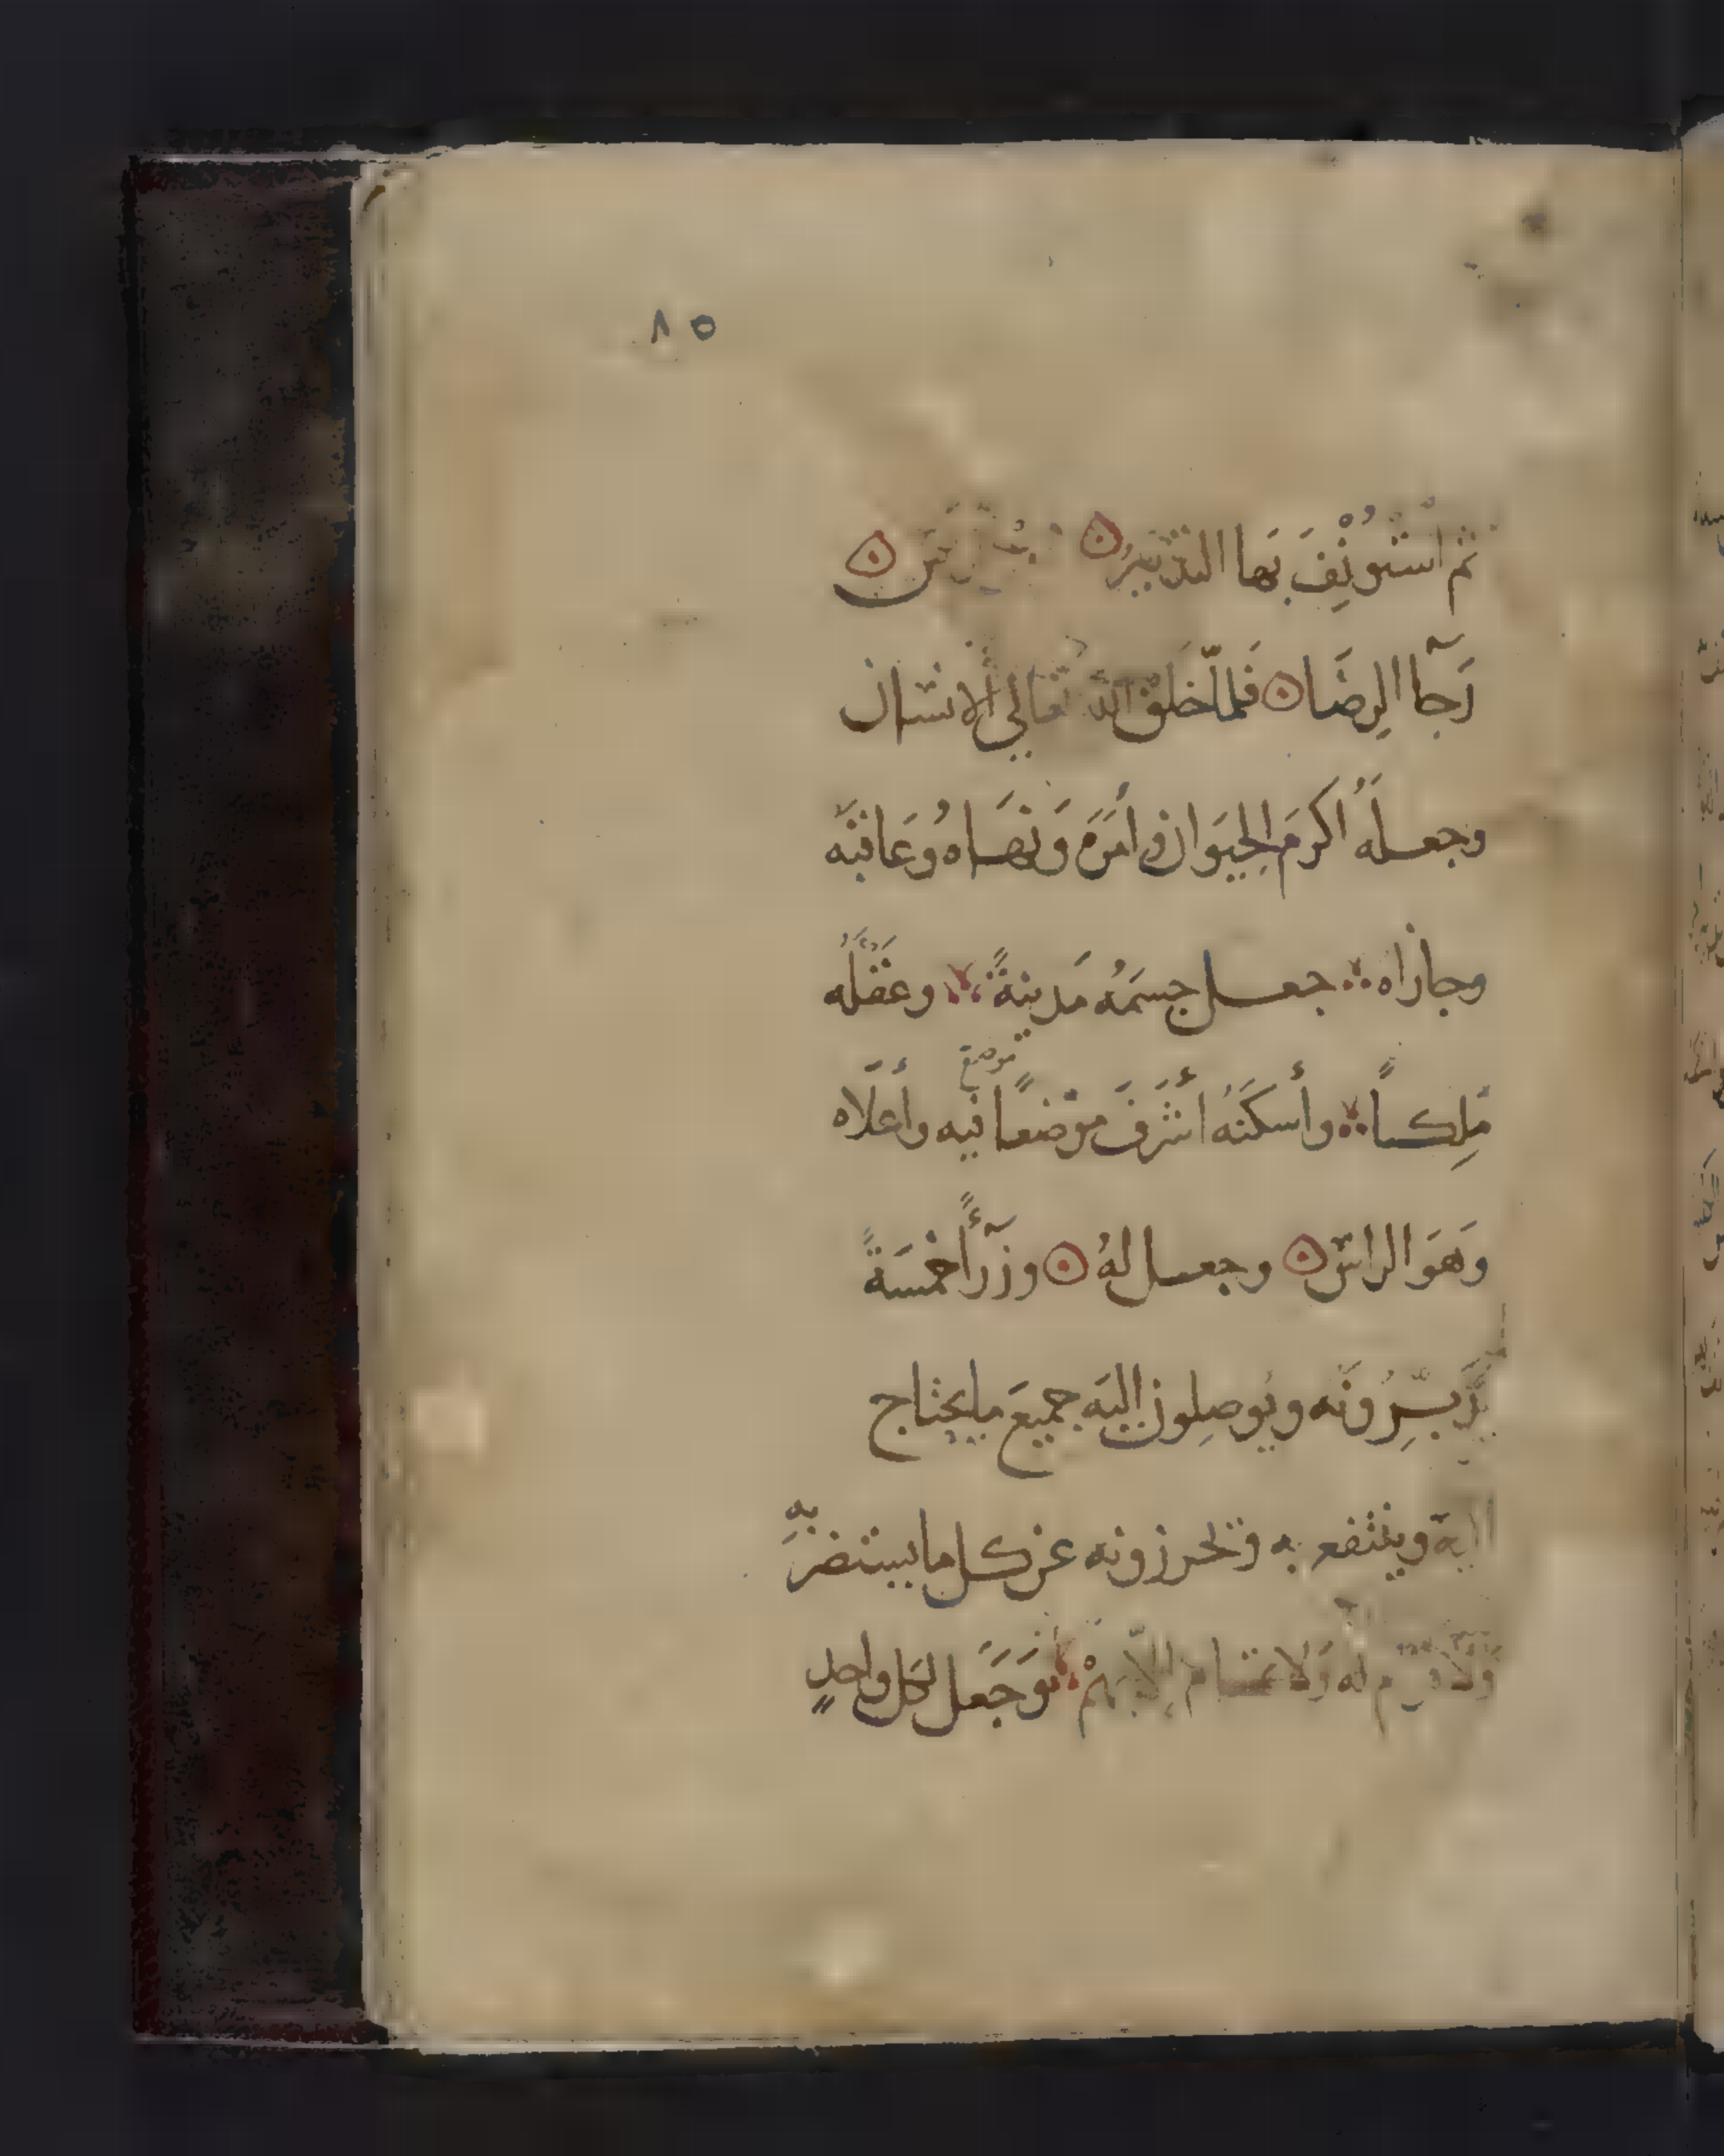 ٨٥
ثم استونِفَ بها التدبيرُ
رَجا الرِضَا فلمّا خلق الله تعالي الانسان
وجعلهُ اكرمَ الحِيَوان وامرَهُ وَنهَاهُ وعَاقبَه
وجازاه جعل جسمَهُ مَدينةً وعقلَهُ
مَلِكاً وأسكنَهُ أشرَفَ موضعًا فيه وأعلاه
موضع
وَهوَ الراس وجعل لهُ وزرآءً خمسَةً
يدَبِّرُونَه ويُوصِلون اليَه جميعَ ما يحتاج
اليه وينتفع به وتحرزونه عن كل ما يستضرّ
بهِ
ولا قوام له وَلا تمام إلّا بهِمْ وَجَعل لكل واحدٍ